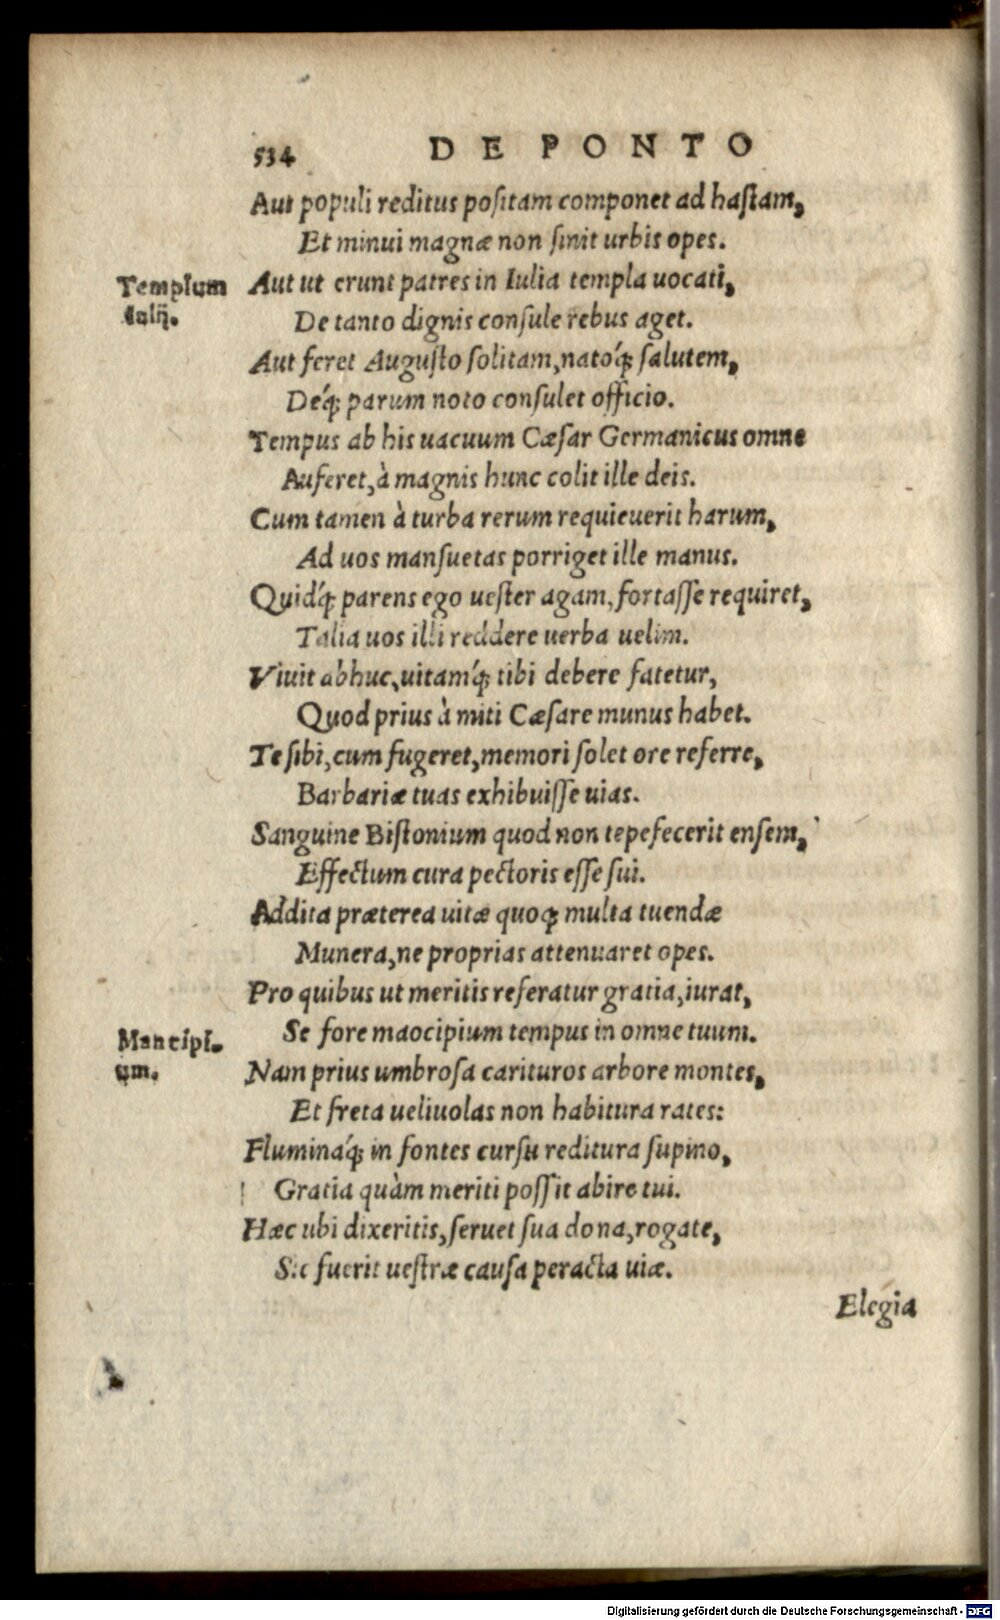 534 DE PONTO
Aut populi reditus positam componet ad hastam,
Et minui magnæ non sinit urbis opes.
Templum
Iulij.
Aut ut erunt patres in Iulia templa uocati,
De tanto dignis consule rebus aget.
Aut feret Augusto solitam, natoq́; salutem,
Deq́; parum noto consulet officio.
Tempus ab his uacuum Cæsar Germanicus omne
Auferet, à magnis hunc colit ille deis.
Cum tamen à turba rerum requieuerit harum,
Ad uos mansuetas porriget ille manus.
Quidq́; parens ego uester agam, fortasse requiret,
Talia uos illi reddere uerba uelim.
Viuit abhuc, uitamq́; tibi debere fatetur,
Quod prius à miti Cæsare munus habet.
Te sibi, cum fugeret, memori solet ore referre,
Barbariæ tuas exhibuisse uias.
Sanguine Bistonium quod non tepefecerit ensem,
Effectum cura pectoris esse sui.
Addita præterea uitæ quoq; multa tuendæ
Munera, ne proprias attenuaret opes.
Pro quibus ut meritis referatur gratia, iurat,
Se fore maocipium tempus in omne tuum.
Mancipi-
um.
Nam prius umbrosa carituros arbore montes,
Et freta ueliuolas non habitura rates:
Fluminaq́; in fontes cursu reditura supino,
Gratia quàm meriti possit abire tui.
Hæc ubi dixeritis, seruet sua dona, rogate,
Sic fuerit uestræ causa peracta uiæ.
Elegia
Digitalisierung gefördert durch die Deutsche Forschungsgemeinschaft - DFG